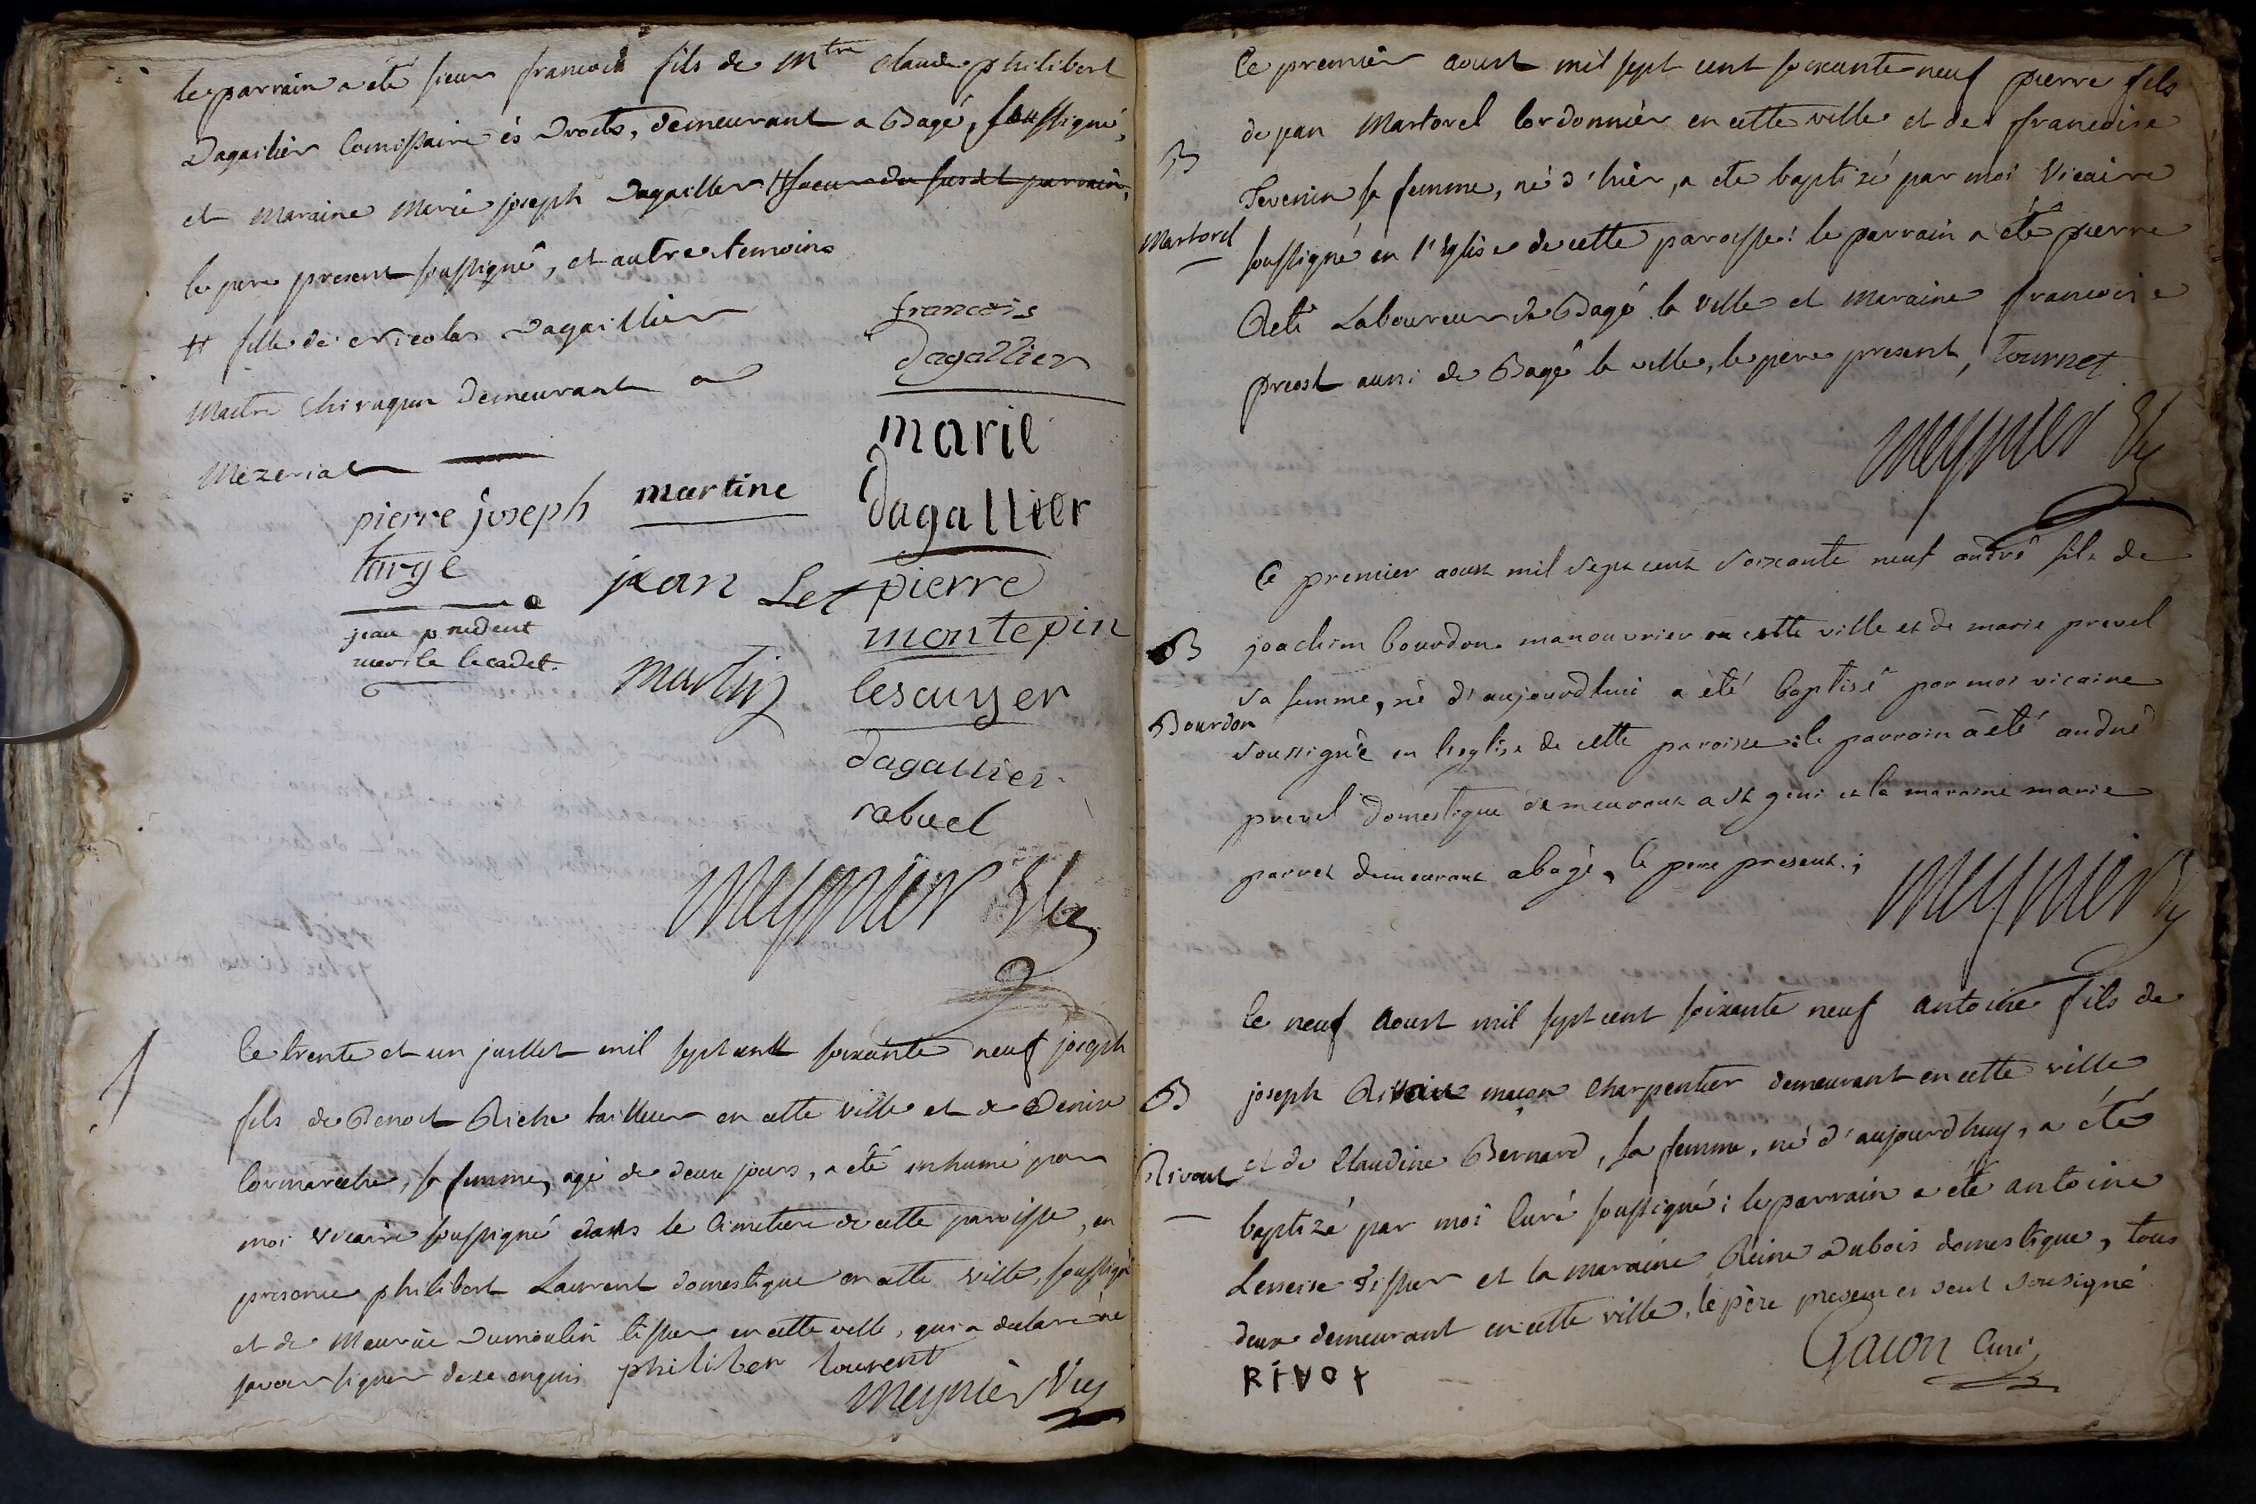 le parrain a eté sieur francois fils de Mtre claude philibert
Dagaillier Comissaire és Droits, demeurant a Bagé, soussigné,
et Maraine Marie joseph Dagaillier # soeur du susdit parrain,
le pere present soussigné, et autres temoins
# fille de Nicolas Dagaillier
Maitre Chirugien demeurant a
Mezeriat
francois
dagallier
marie
dagallier
pierre joseph
targe
martine
jean prudent
merle le cadet.
jean
martin
pierre
montepin
lescuyer
dagallier
rabuel
Meynier Vic
Le trente et un juillet mil sept cent soixante neuf joseph
fils de Benoit Riche tailleur en cette ville et de Denise
Cormareche, sa femme, agé de deux jours, a eté inhumé par
moi vicaire soussigné dans le Cimetiere de cette paroisse, en
presence philibert Laurent domestique en cette ville, soussigné
et de Maurice Dumoulin tissier en cette ville, qui a declaré ne
savoir signer de ce enquis philiber lourent
Meynier Vic
Ce premier aoust mil sept cent soixante neuf pierre fils
de jean Martorel Cordonnier en cette ville et de francoise
Tevenin sa femme, né d'hier, a ete baptizé par moi Vicaire
soussigné en l'Eglise de cette paroisse: le parrain a eté pierre
Reti Laboureur de Bagé la ville et Maraine francoise
preost aussi de Bagé la ville, le pere present, Tournet
B
Martorel
Meynier Vic
Ce premier aoust mil sept cent soixante neuf andré fils de
joachim bourdon manouvrier en cette ville et de marie prevel
sa femme, né d'aujourdhui a été baptisé par moi vicaire
soussigné en l'eglise de cette paroisse: le parrain a été andré
prevel domestique demeurant a st geni et la maraine marie
parret demeurant a bagé, le pere present;
B
Bourdon
Meynier Vic
le neuf Aoust mil sept cent soixante neuf antoine fils de
joseph Rivoire maçon Charpentier demeurant en cette ville
et de Claudine Bernard, sa femme, né d'aujourdhuy, a été
baptizé par moi Curé soussigné: le parrain a eté antoine
tissier et la maraine Reine Dubois domestique, tous
deux demeurant en cette ville, le père present et seul sousigné
B
RIVOY
Gacon Curé